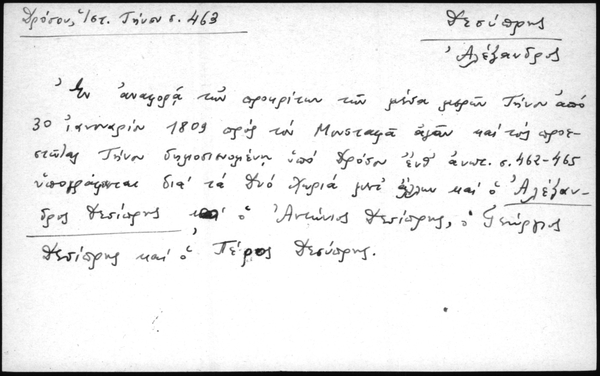 Δρόσου, Ἱστ. Τήνου σ. 463
Δεσύπρης
Ἀλέξανδρος
Ἐν ἀναφορᾷ τῶν προκρίτων τῶν μέσα μερῶν Τήνου ἀπό
30 ἰανουαρίου 1809 πρός τόν Μουσταφᾶ ἀγᾶν καί τούς προε-
στῶτας Τήνου δημοσιευομένῃ ὑπό Δρόσου ἔνθ' ἀνωτ. σ. 462-465
ὑπογράφεται διά τά Δυό Χωριά μετ' ἄλλων καί ὁ Ἀλέξαν-
δρος Δεσίπρης καί ὁ Ἀντώνιος Δεσίπρης, ὁ Γεώργιος
Δεσίπρης καί ὁ Πέρος Δεσύπρης.